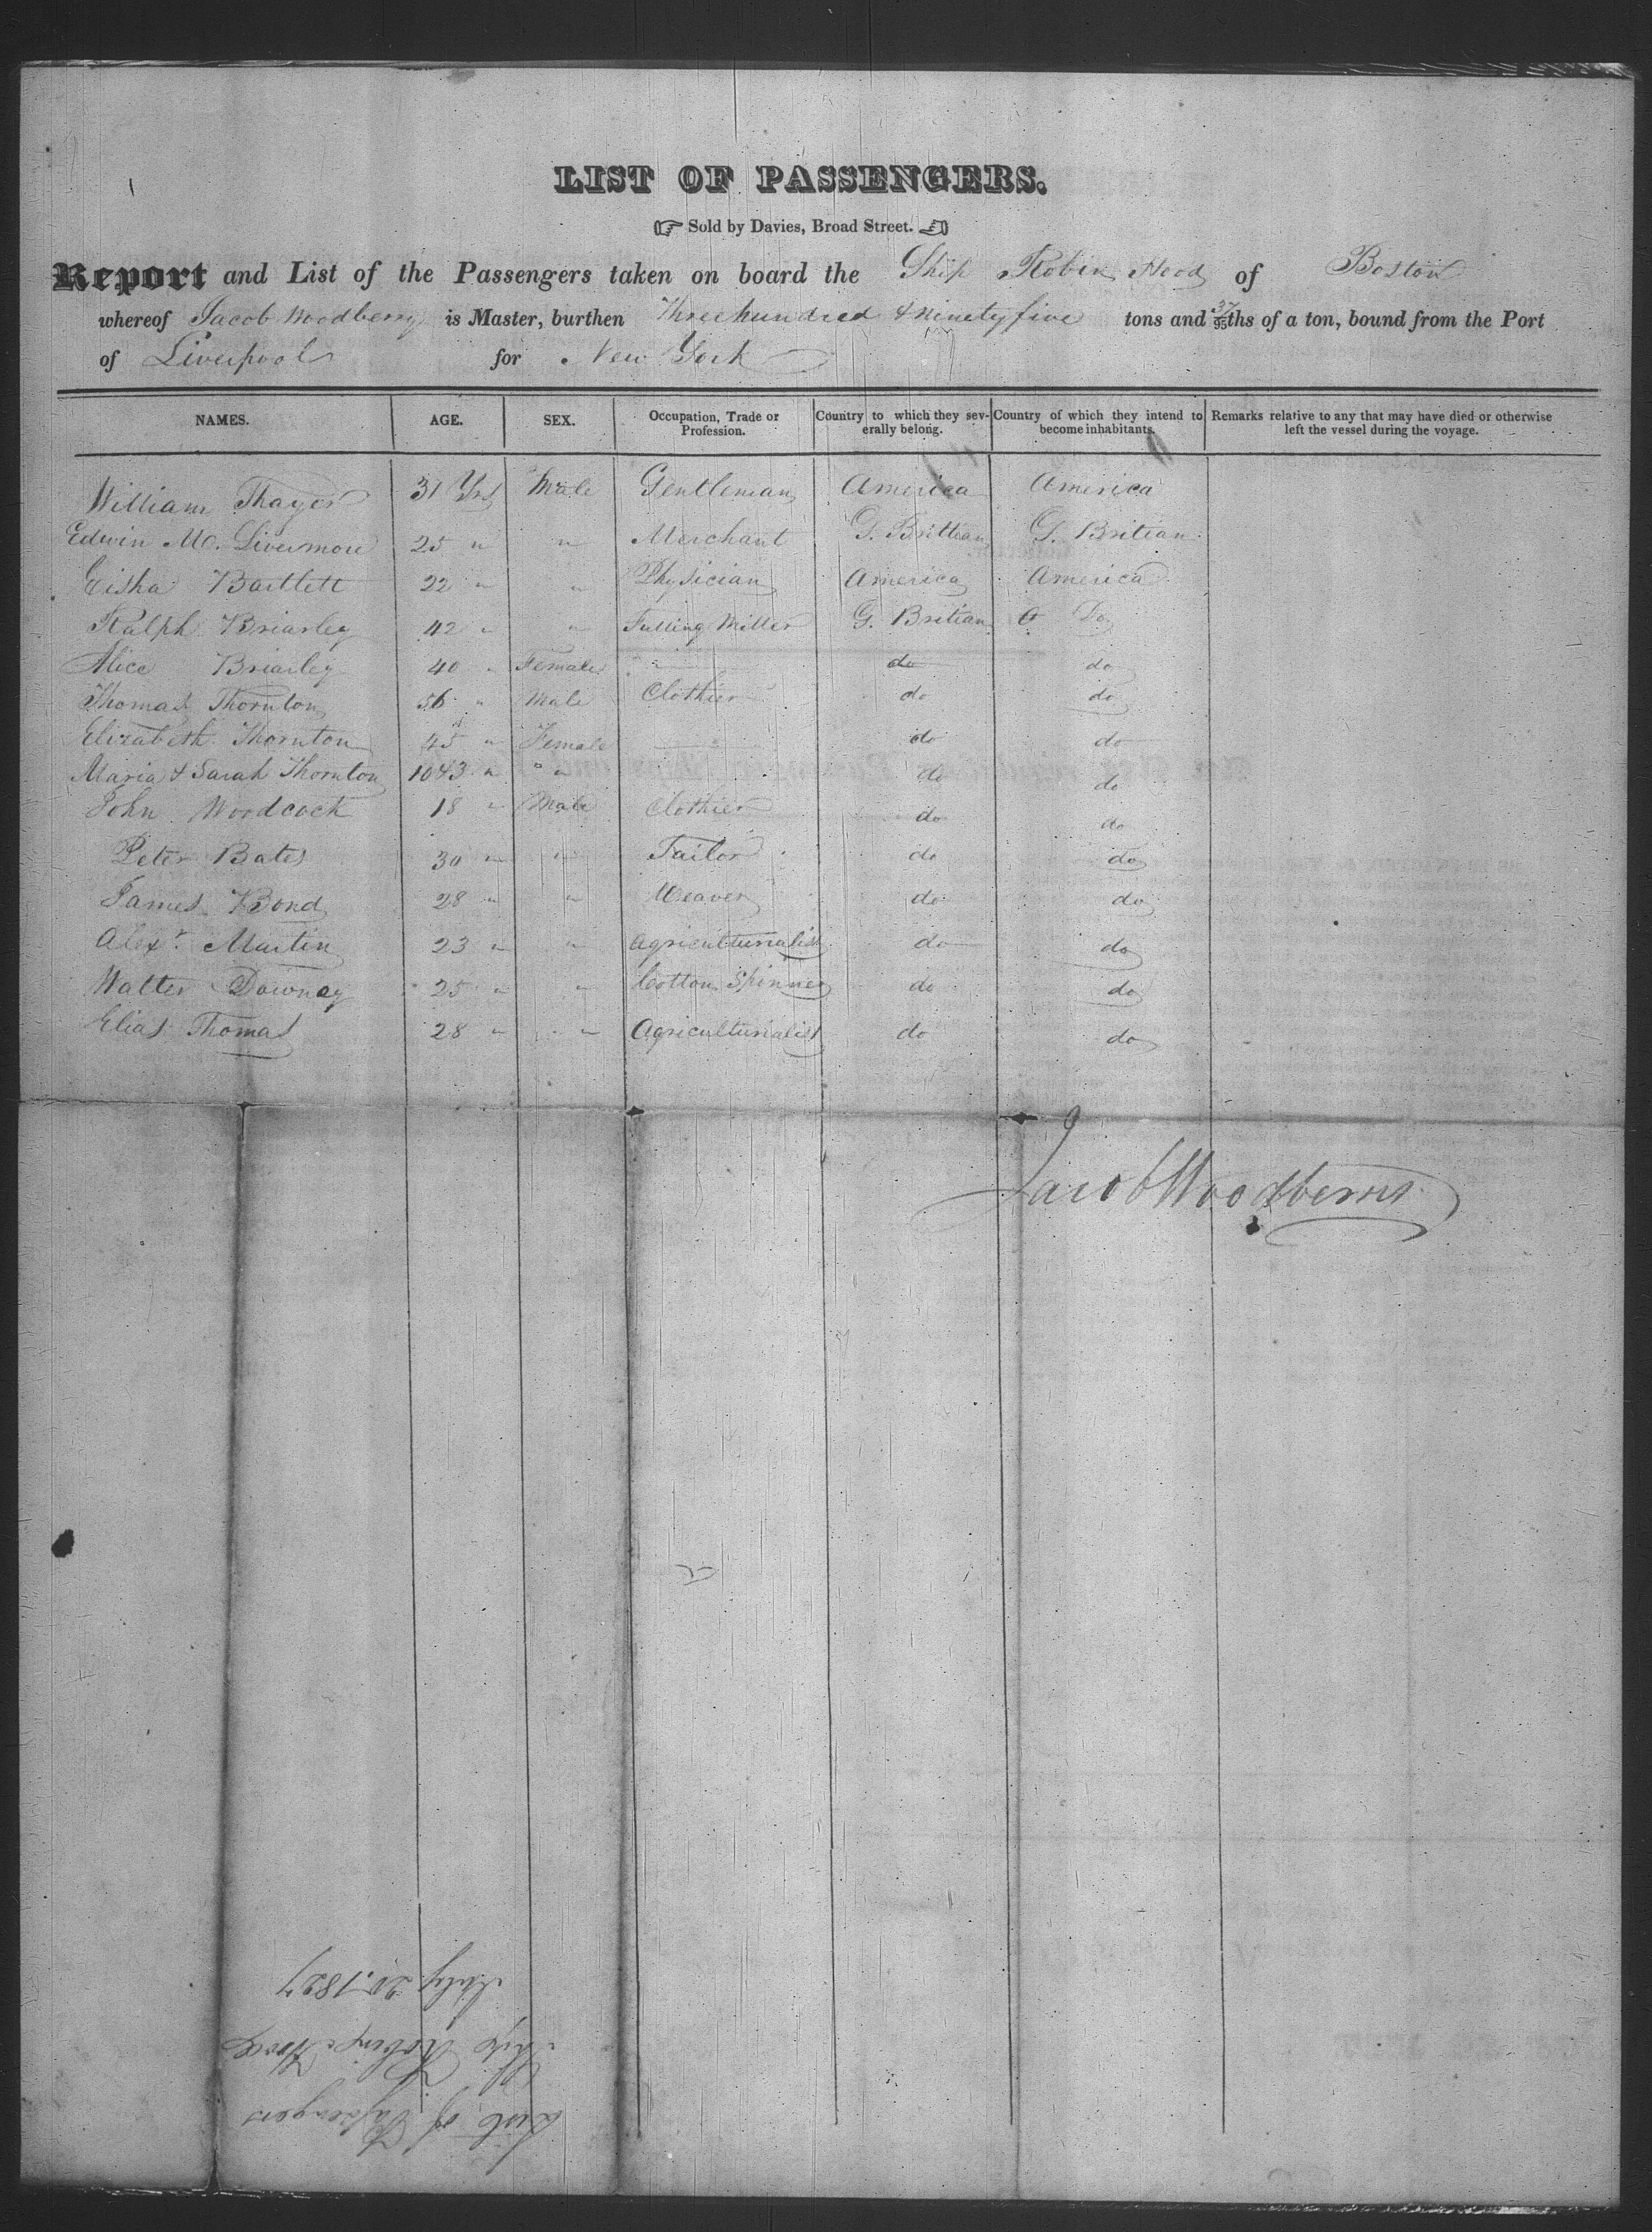 LIST OF PASSENGERS.
Sold by Davies, Broad Street.
Report and List of the Passengers taken on board the Ship Robin Hood of Boston
whereof Jacob Woodberry is Master, burthen Three hundred & ninety five tons and 37/95ths of a ton, bound from the Port
of Liverpool for New York
NAMES. AGE. SEX. Occupation, Trade or Profession. Country to which they severally belong. Country of which they intend to become inhabitants. Remarks relative to any that may have died or otherwise left the vessel during the voyage.
William Thayer 31 Yrs Male Gentleman America America
Edwin Mc. Livermore 25 " " Merchant G. Brittian G. Britian
Eisha Bartlett 22 " " Physician America America
Ralph Briarley 42 " " Fulling Miller G. Britian G Do
Alice Briarley 40 " Female " do do
Thomas Thornton 56 " Male Clothier do do
Elizabeth Thornton 45 " Female do do
Maria & Sarah Thornton 10 & 3 " " " do do
John Woodcock 18 " Male Clothier do do
Peter Bates 30 " " Tailor do do
James Bond 28 " " Weaver do do
Alexr. Martin 23 " " Agriculturialist do do
Walter Downey 25 " " Cotton Spinner do do
Elias Thomas 28 " " Agriculturialist do do
Jacob Woodberry
List of Passengers
Ship Robin Hood
July 20, 1827